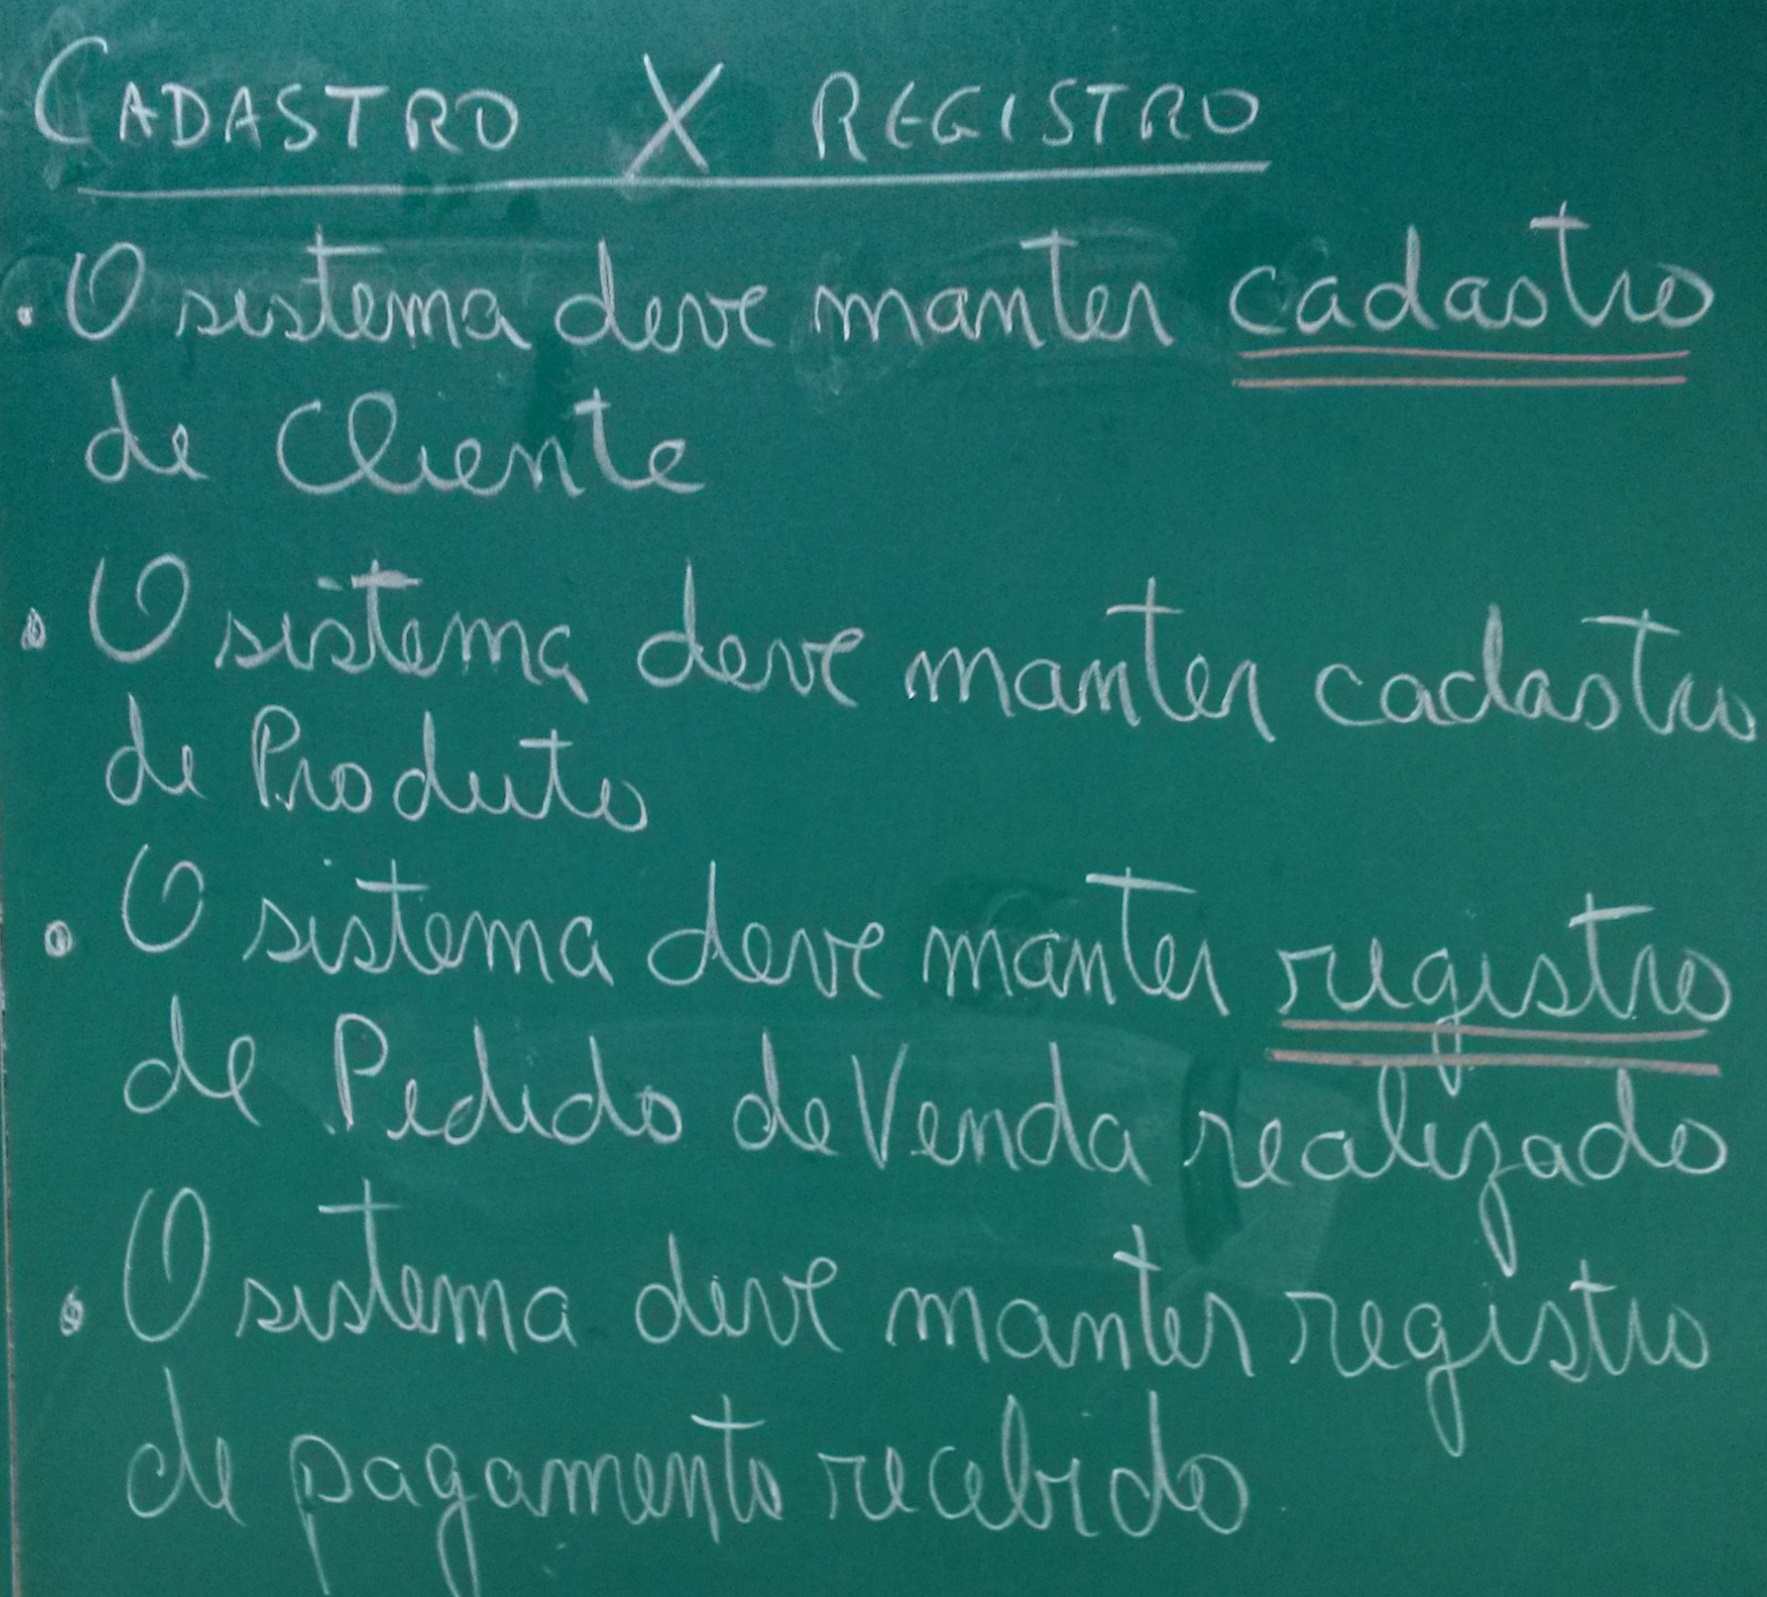 CADASTRO X REGISTRO
• O sistema deve manter cadastro
de Cliente
• O sistema deve manter cadastro
de Produto
• O sistema deve manter registro
de Pedido de Venda realizado
• O sistema deve manter registro
de pagamento recebido